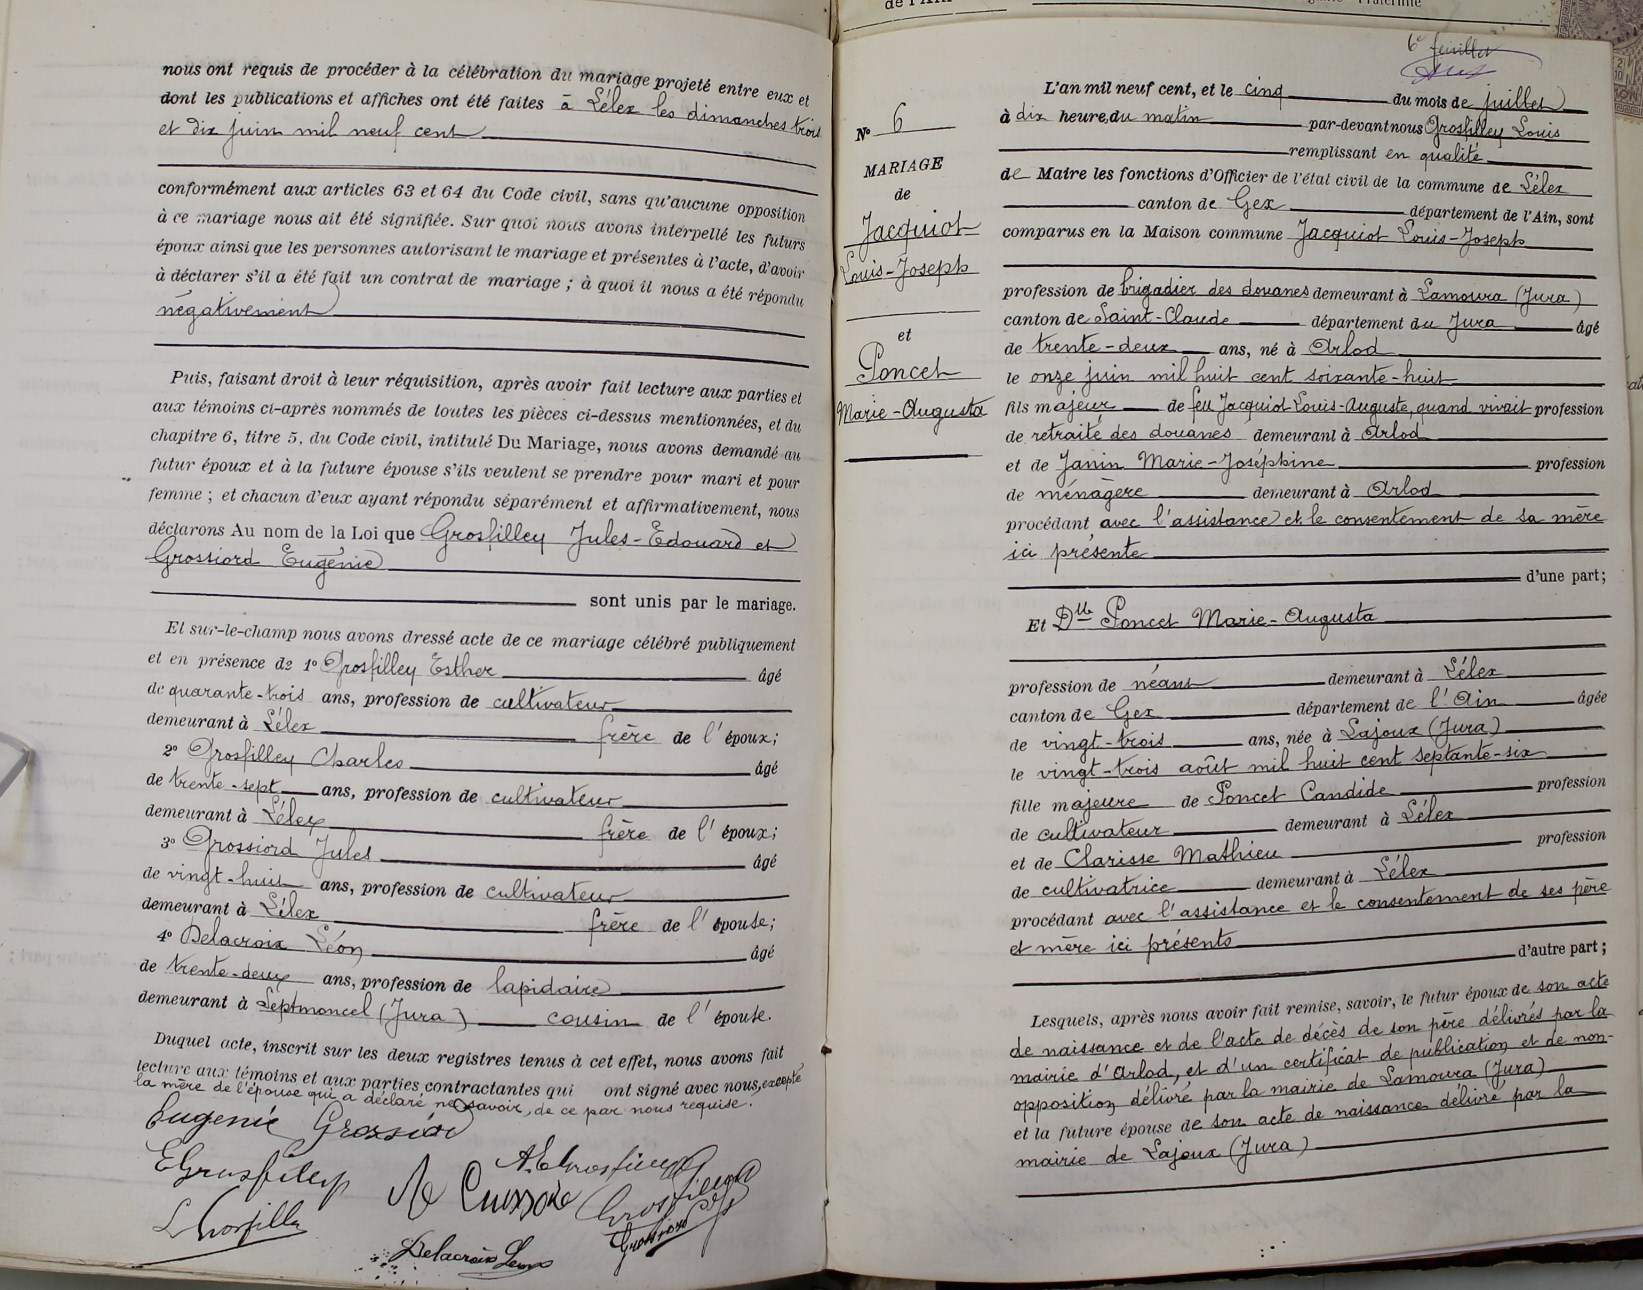 nous ont requis de procéder à la célébration du mariage projeté entre eux et
dont les publications et affiches ont été faites à Lélex les dimanches trois
et dix juin mil neuf cent
conformément aux articles 63 et 64 du Code civil, sans qu'aucune opposition
à ce mariage nous ait été signifiée. Sur quoi nous avons interpellé les futurs
époux ainsi que les personnes autorisant le mariage et présentes à l'acte, d'avoir
à déclarer s'il a été fait un contrat de mariage ; à quoi il nous a été répondu
négativement
Puis, faisant droit à leur réquisition, après avoir fait lecture aux parties et
aux témoins ci-après nommés de toutes les pièces ci-dessus mentionnées, et du
chapitre 6, titre 5, du Code civil, intitulé Du Mariage, nous avons demandé au
futur époux et à la future épouse s'ils veulent se prendre pour mari et pour
femme ; et chacun d'eux ayant répondu séparément et affirmativement, nous
déclarons Au nom de la Loi que Grosfilley Jules-Edouard et
Grossiord Eugénie
sont unis par le mariage.
Et sur-le-champ nous avons dressé acte de ce mariage célébré publiquement
et en présence de 1° Grosfilley Esther âgé
de quarante-trois ans, profession de cultivateur
demeurant à Lélex frère de l'époux;
2° Grosfilley Charles âgé
de trente-sept ans, profession de cultivateur
demeurant à Lélex frère de l'époux;
3° Grossiord Jules âgé
de vingt-huit ans, profession de cultivateur
demeurant à Lélex frère de l'épouse;
4° Delacroix Léon âgé
de trente-deux ans, profession de lapidaire
demeurant à Septmoncel (Jura) cousin de l'épouse.
Duquel acte, inscrit sur les deux registres tenus à cet effet, nous avons fait
lecture aux témoins et aux parties contractantes qui ont signé avec nous, excepté
la mère de l'épouse qui a déclaré ne savoir, de ce par nous requise.
Eugenie Grossiord
EGrosfilley
Delacroix Léon
6e feuillet
N° 6
MARIAGE
de
Jacquiot
Louis-Joseph
et
Poncet
Marie-Augusta
L'an mil neuf cent, et le cinq du mois de juillet
à dix heures du matin par-devant nous Grosfilley Louis
remplissant en qualité
de Maire les fonctions d'Officier de l'état civil de la commune de Lélex
canton de Gex département de l'Ain, sont
comparus en la Maison commune Jacquiot Louis-Joseph
profession de brigadier des douanes demeurant à Lamoura (Jura)
canton de Saint-Claude département du Jura âgé
de trente-deux ans, né à Arlod
le onze juin mil huit cent soixante-huit
fils majeur de feu Jacquiot Louis-Auguste, quand vivait profession
de retraité des douanes demeurant à Arlod
et de Janin Marie-Joséphine profession
de ménagère demeurant à Arlod
procédant avec l'assistance et le consentement de sa mère
ici présente
d'une part;
Et Dlle Poncet Marie-Augusta
profession de néant demeurant à Lélex
canton de Gex département de l'Ain âgée
de vingt-trois ans, née à Lajoux (Jura)
le vingt-trois août mil huit cent septante-six
fille majeure de Poncet Candide profession
de cultivateur demeurant à Lélex
et de Clarisse Mathieu profession
de cultivatrice demeurant à Lélex
procédant avec l'assistance et le consentement de ses père
et mère ici présents
d'autre part;
Lesquels, après nous avoir fait remise, savoir, le futur époux de son acte
de naissance et de l'acte de décès de son père délivrés par la
mairie d'Arlod, et d'un certificat de publication et de non-
opposition délivré par la mairie de Lamoura (Jura)
et la future épouse de son acte de naissance délivré par la
mairie de Lajoux (Jura)